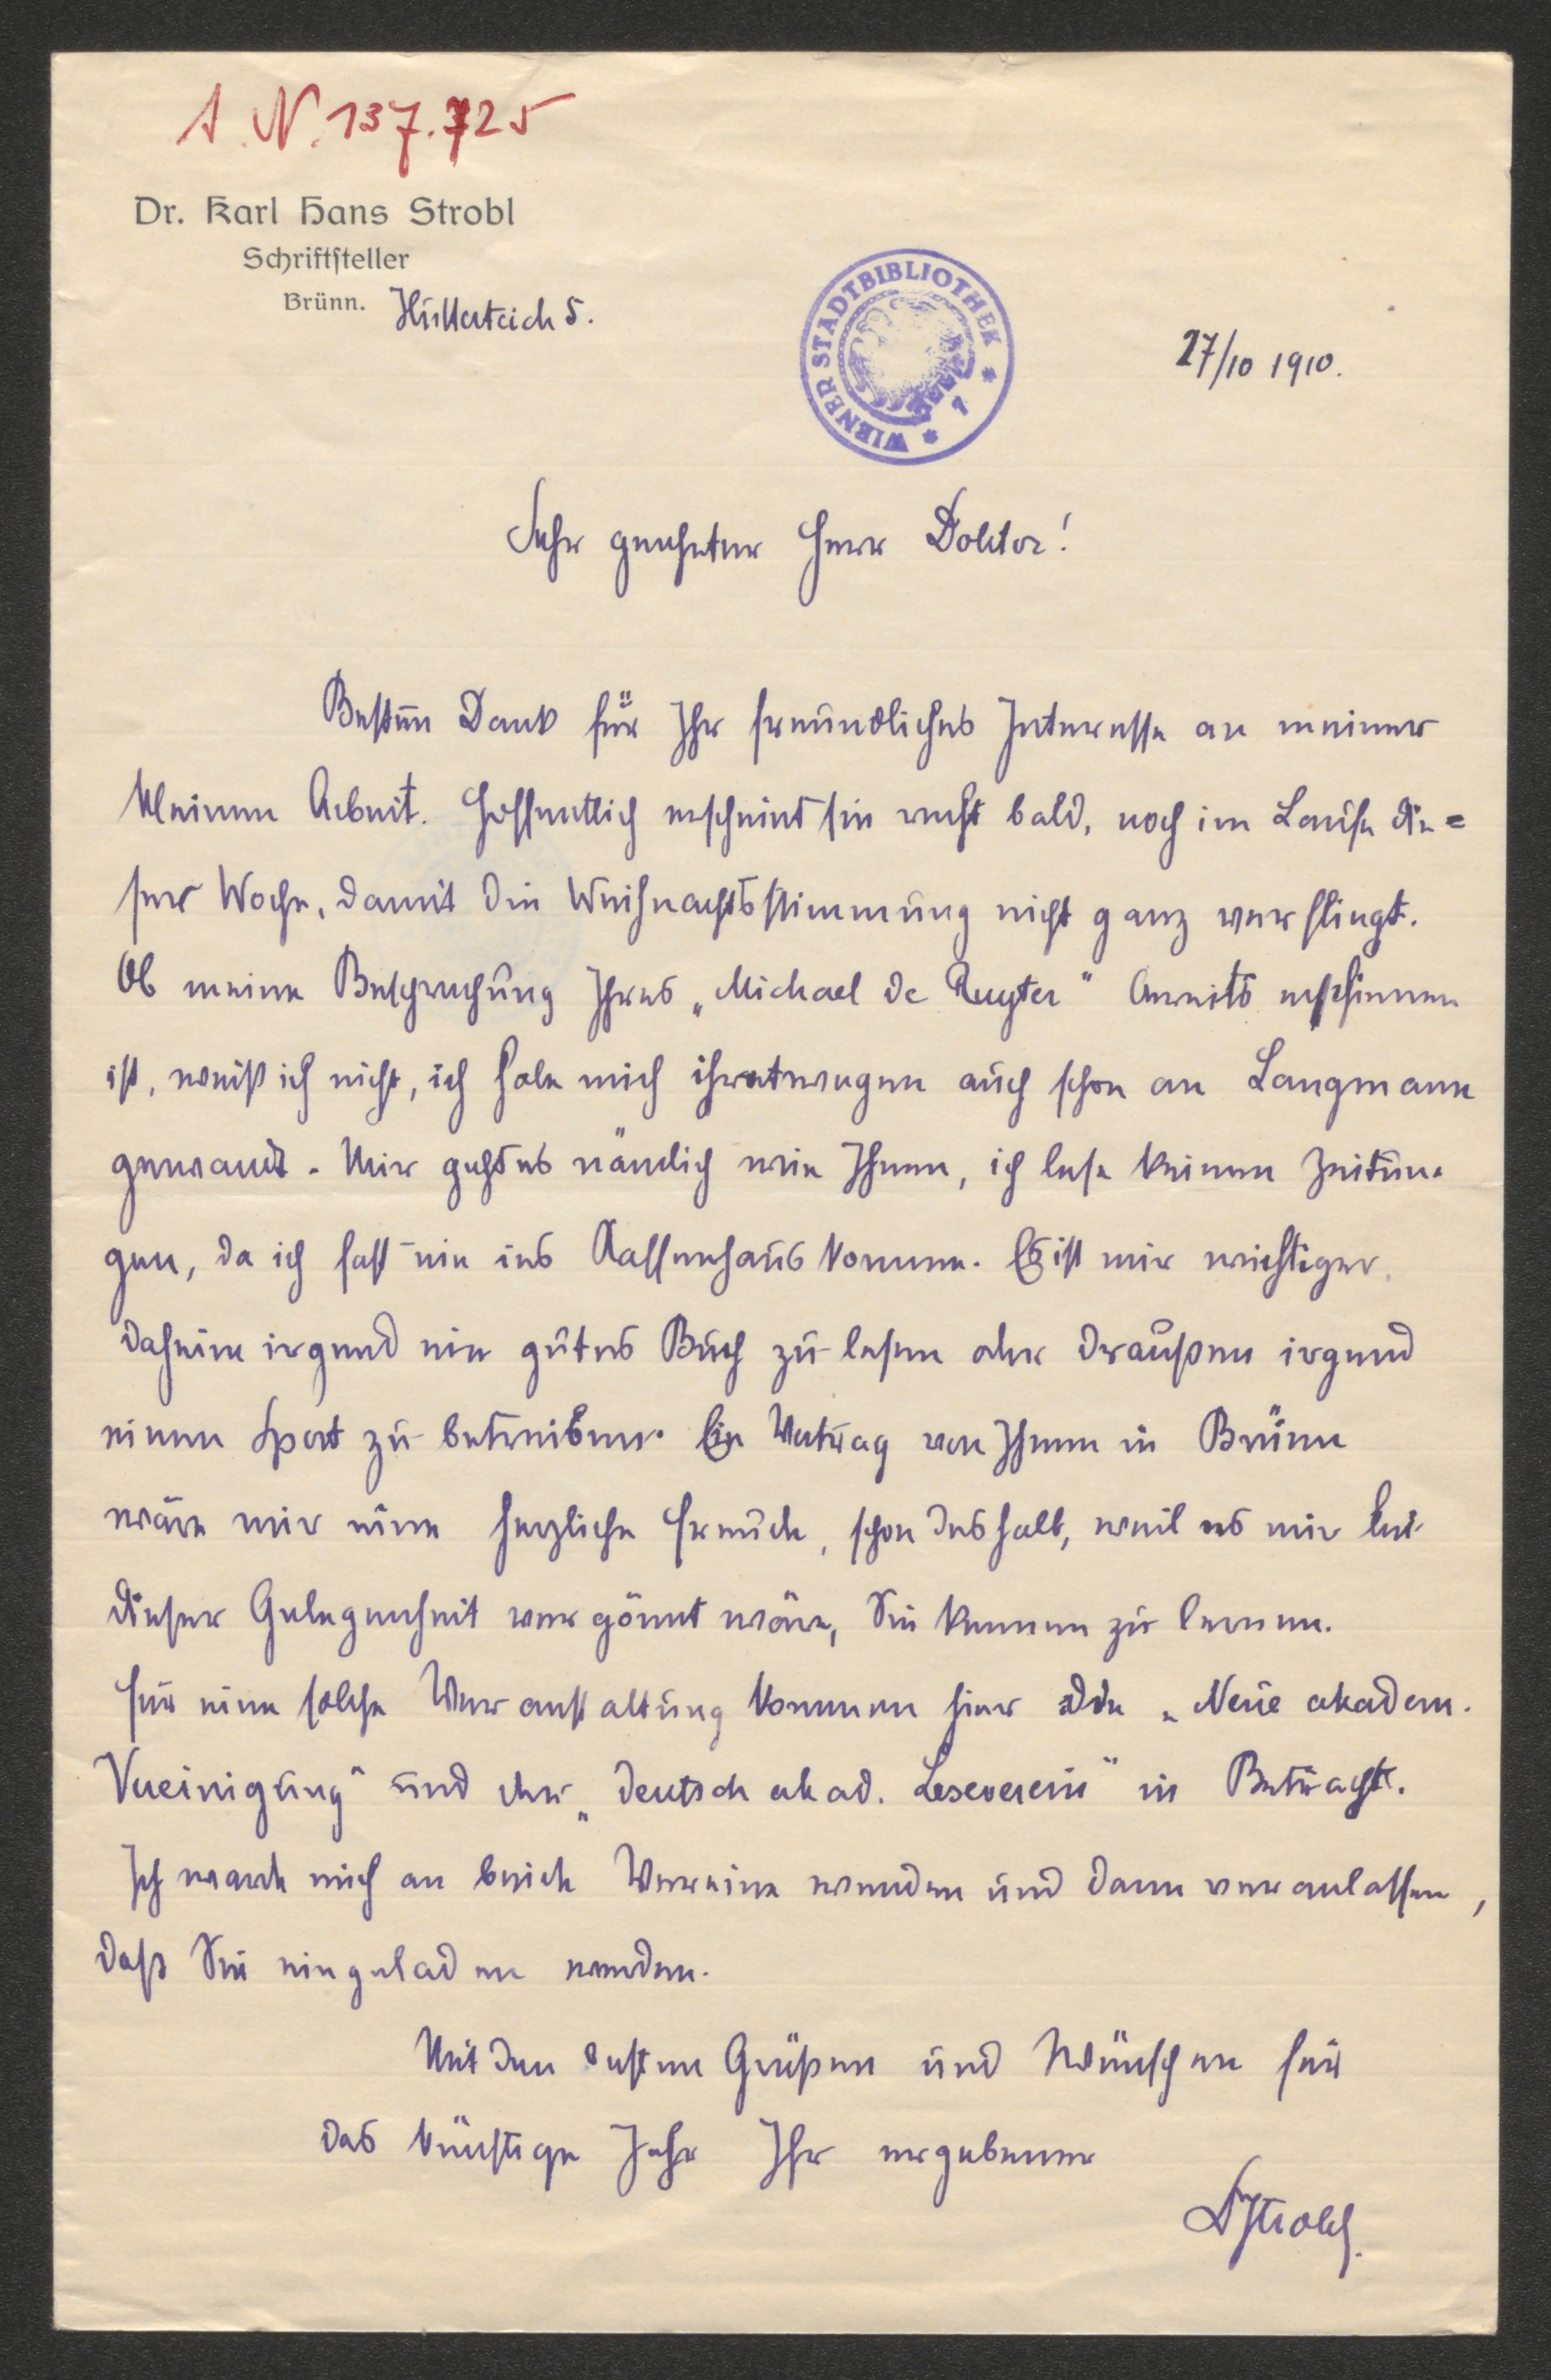 I. N. 137.725
Dr. Karl Hans Strobl
Schriftsteller
Brünn. Hutterteich 5.
WIENER STADTBIBLIOTHEK * 1 *
27/10 1910.
Sehr geehrter Herr Doktor!
Besten Dank für Ihr freundliches Interesse an meiner
kleinen Arbeit. Hoffentlich erscheint sie recht bald, noch im Laufe die=
ser Woche, damit die Weihnachtsstimmung nicht ganz verfliegt.
Ob meine Besprechung Ihres „Michael de Ruyter" bereits erschienen
ist, weiß ich nicht, ich habe mich ihretwegen auch schon an Langmann
gewandt. Mir geht es nämlich wie Ihnen, ich lese keinen Zeitun-
gen, da ich fast nie ins Kaffeehaus komme. Es ist mir wichtiger,
daheim irgend ein gutes Buch zu lesen oder draußen irgend
einen Sport zu betreiben. Ein Vortrag von Ihnen in Brünn
wäre mir eine herzliche Freude, schon deshalb, weil es mir bei
dieser Gelegenheit vergönnt wäre, Sie kennen zu lernen.
Für eine solche Veranstaltung kommen hier die „Neue akadem.
Vereinigung" und der „deutsch akad. Leseverein" in Betracht.
Ich werde mich an beide Vereine wenden und dann veranlassen,
daß Sie eingeladen werden.
Mit den besten Grüßen und Wünschen für
das künftige Jahr Ihr ergebener
DrStrobl.